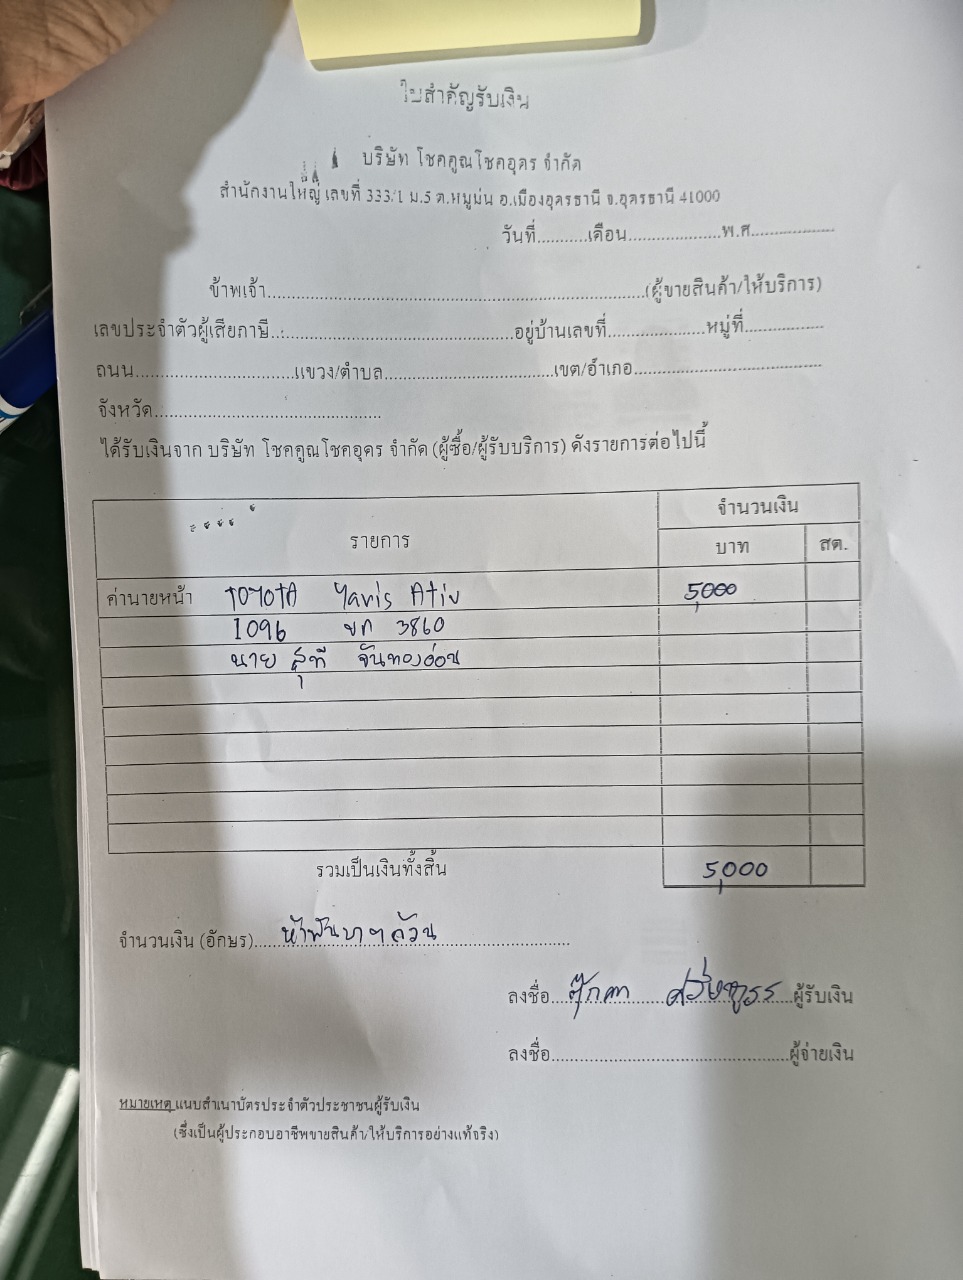 ใบสำคัญรับเงิน
บริษัท โชคคูณโชคอุดร จำกัด
สำนักงานใหญ่ เลขที่ 333/1 ม.5 ต.หมูม่น อ.เมืองอุดรธานี จ.อุดรธานี 41000
วันที่...........เดือน.....................พ.ศ...................
ข้าพเจ้า.....................................................................................(ผู้ขายสินค้า/ให้บริการ)
เลขประจำตัวผู้เสียภาษี......................................................อยู่บ้านเลขที่......................หมู่ที่..................
ถนน....................................แขวง/ตำบล......................................เขต/อำเภอ..........................................
จังหวัด...................................................
ได้รับเงินจาก บริษัท โชคคูณโชคอุดร จำกัด (ผู้ซื้อ/ผู้รับบริการ) ดังรายการต่อไปนี้
รายการ จำนวนเงิน
บาท สต.
ค่านายหน้า TOYOTA Yaris Ativ 5,000
1096 ขก 3860
นาย สุที จันทองอ่อน
รวมเป็นเงินทั้งสิ้น 5,000
จำนวนเงิน (อักษร)....ห้าพันบาทถ้วน
ลงชื่อ...ตุ๊กตา ...ผู้รับเงิน
ลงชื่อ.....................................................ผู้จ่ายเงิน
หมายเหตุ แนบสำเนาบัตรประจำตัวประชาชนผู้รับเงิน
(ซึ่งเป็นผู้ประกอบอาชีพขายสินค้า/ให้บริการอย่างแท้จริง)